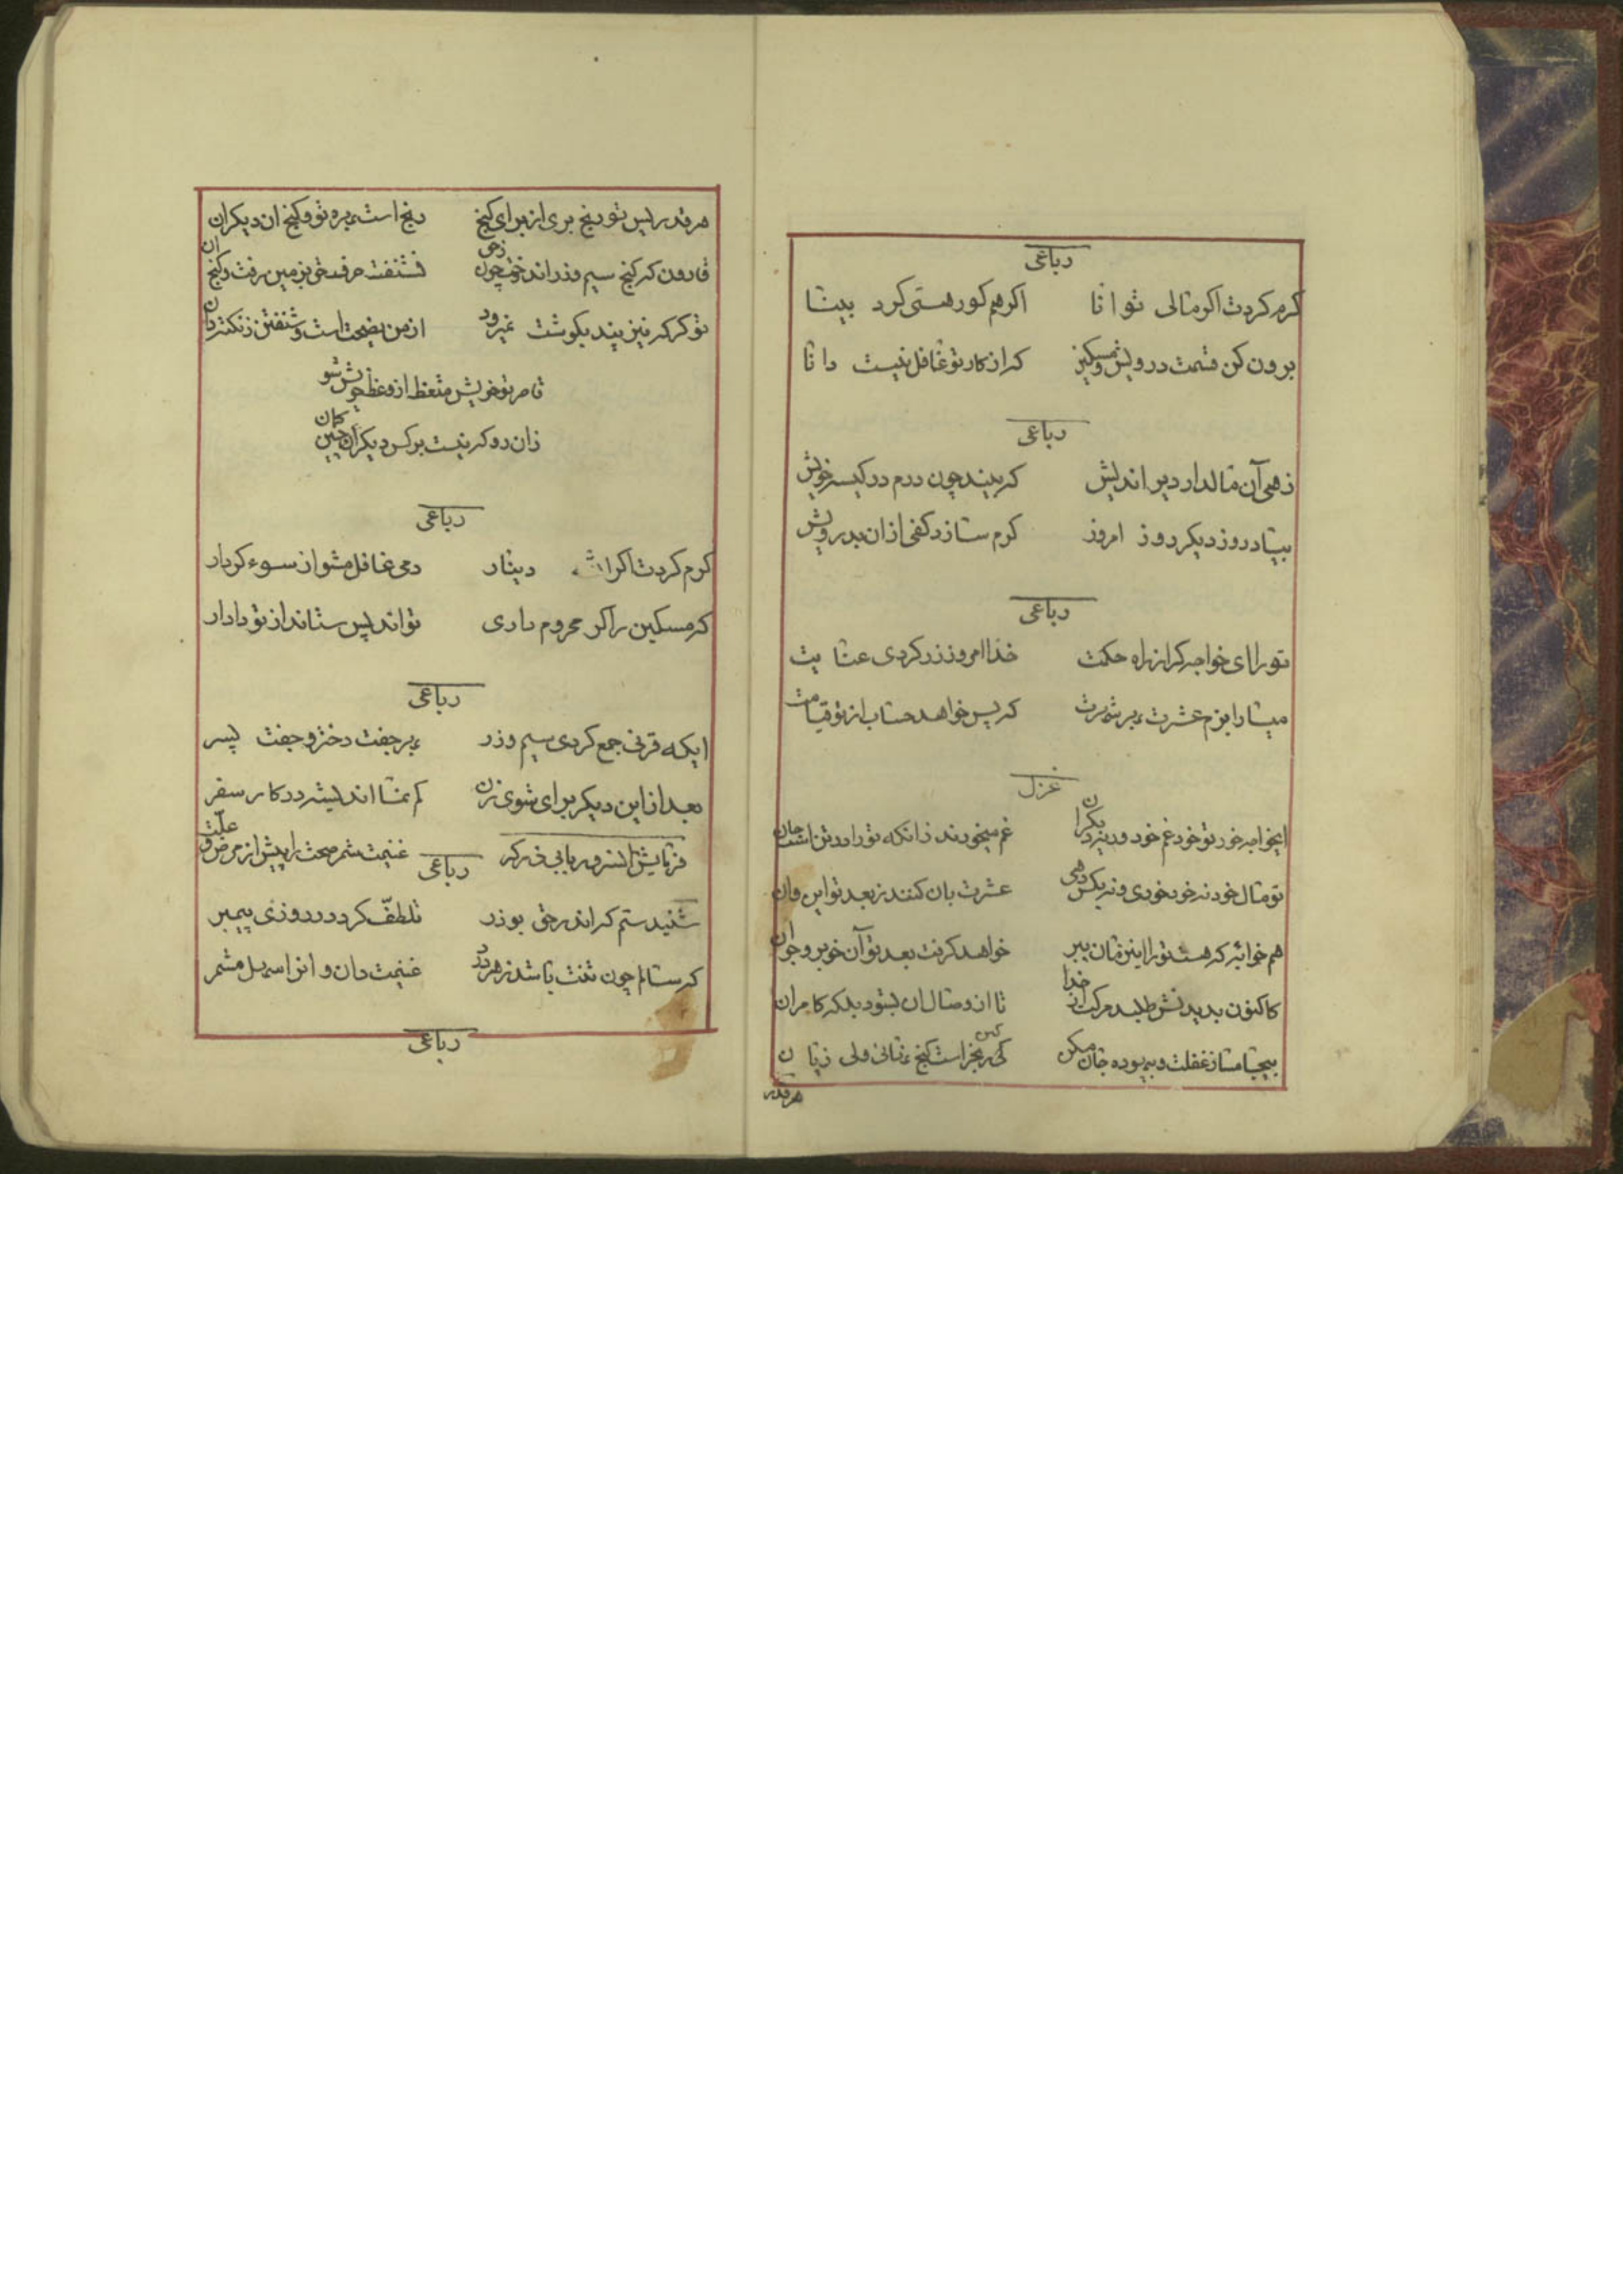 رباعی
کرم کردت اکر مالی توانا اکر هم کور هستی کرد بینا
برون کن قسمت درویش و مسکین که از کار تو غافل نیست دانا
رباعی
زهی آن مالدار دیر اندیش که بیند چون درم در کیسه خویش
بیاد روز دیکر روز امروز کرم سازد کفی از ان بدرویش
رباعی
تو را ای خواجه کر از راه حکمت خدا امروز زر کردی عنایت
میارا بزم عشرت بهر شهرت که پس خواهد حساب از تو قیامت
غزل
ایخواجه خور تو خود غم خود ور نه دیکران غم میخورند زانکه تو را در تن است جان
تو مال خود نه خود خوری و نه بکس دهی عشرت بان کنند ز بعد تو این و ان
هم خوابه که هست تو را اینزمان ببر خواهد کرفت بعد تو آن خوبرو جوان
کاکنون بدیدنش طلبد مرکت از خدا تا از وصال ان بشود بلکه کامران
بیجا مساز غفلت و بیهوده جان مکن کی رنجبر است کنج ولی زیان
هرقدر
هرقدر پس تو رنج بری از برای کنج رنج است بهره تو و کنج ان دیکران
قارون که کنج سیم و زر اندوخت چون زحق نشنفت حرف حق بزمین رفت کنج ان
تو کر که نیز پند بکوشت نمیرود از من نصیحت است و شنفتن ز نکته دان
تا مر تو خویش متعظ از وعظ خویش شو
زان رو که نیست بر کس دیکران چنین کمان
رباعی
کرم کردت اکر دینار دمی غافل مشو از سوء کردار
که مسکین را کر محروم داری تواند پس ستاند از تو دادار
رباعی
ایکه قرنی جمع کردی سیم و زر بهر جفت دختر و جفت پسر
بعد از این دیکر برای شوی زن کم نما اندیشه در کار سفر
رباعی
غنیمت شمر صحت را پیش از مرض و علت
شنیدستم که اندر حق بوذر تلطف کرد در روزی پیمبر
که سالم چون تنت باشد ز هر درد غنیمت دان و انرا سهل مشمر
رباعی